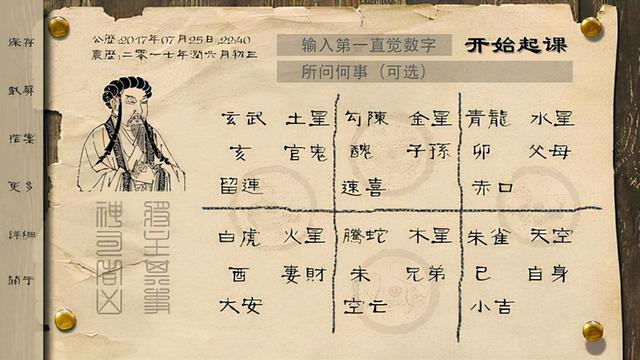 保存
截屏
更多
详细
关于
公歷:2017年07月25日,22:40
農歷:二零一七年潤六月初三
输入第一直觉数字
开始起课
所问何事（可选）
玄武 土星 勾陳 金星 青龍 水星
亥 官鬼 醜 子孫 卯 父母
留連 速喜 赤口
白虎 火星 騰蛇 木星 朱雀 天空
酉 妻財 未 兄弟 巳 自身
大安 空亡 小吉